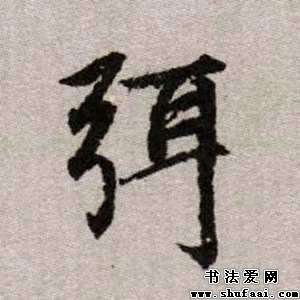 弭
书法爱网
www.shufaai.com